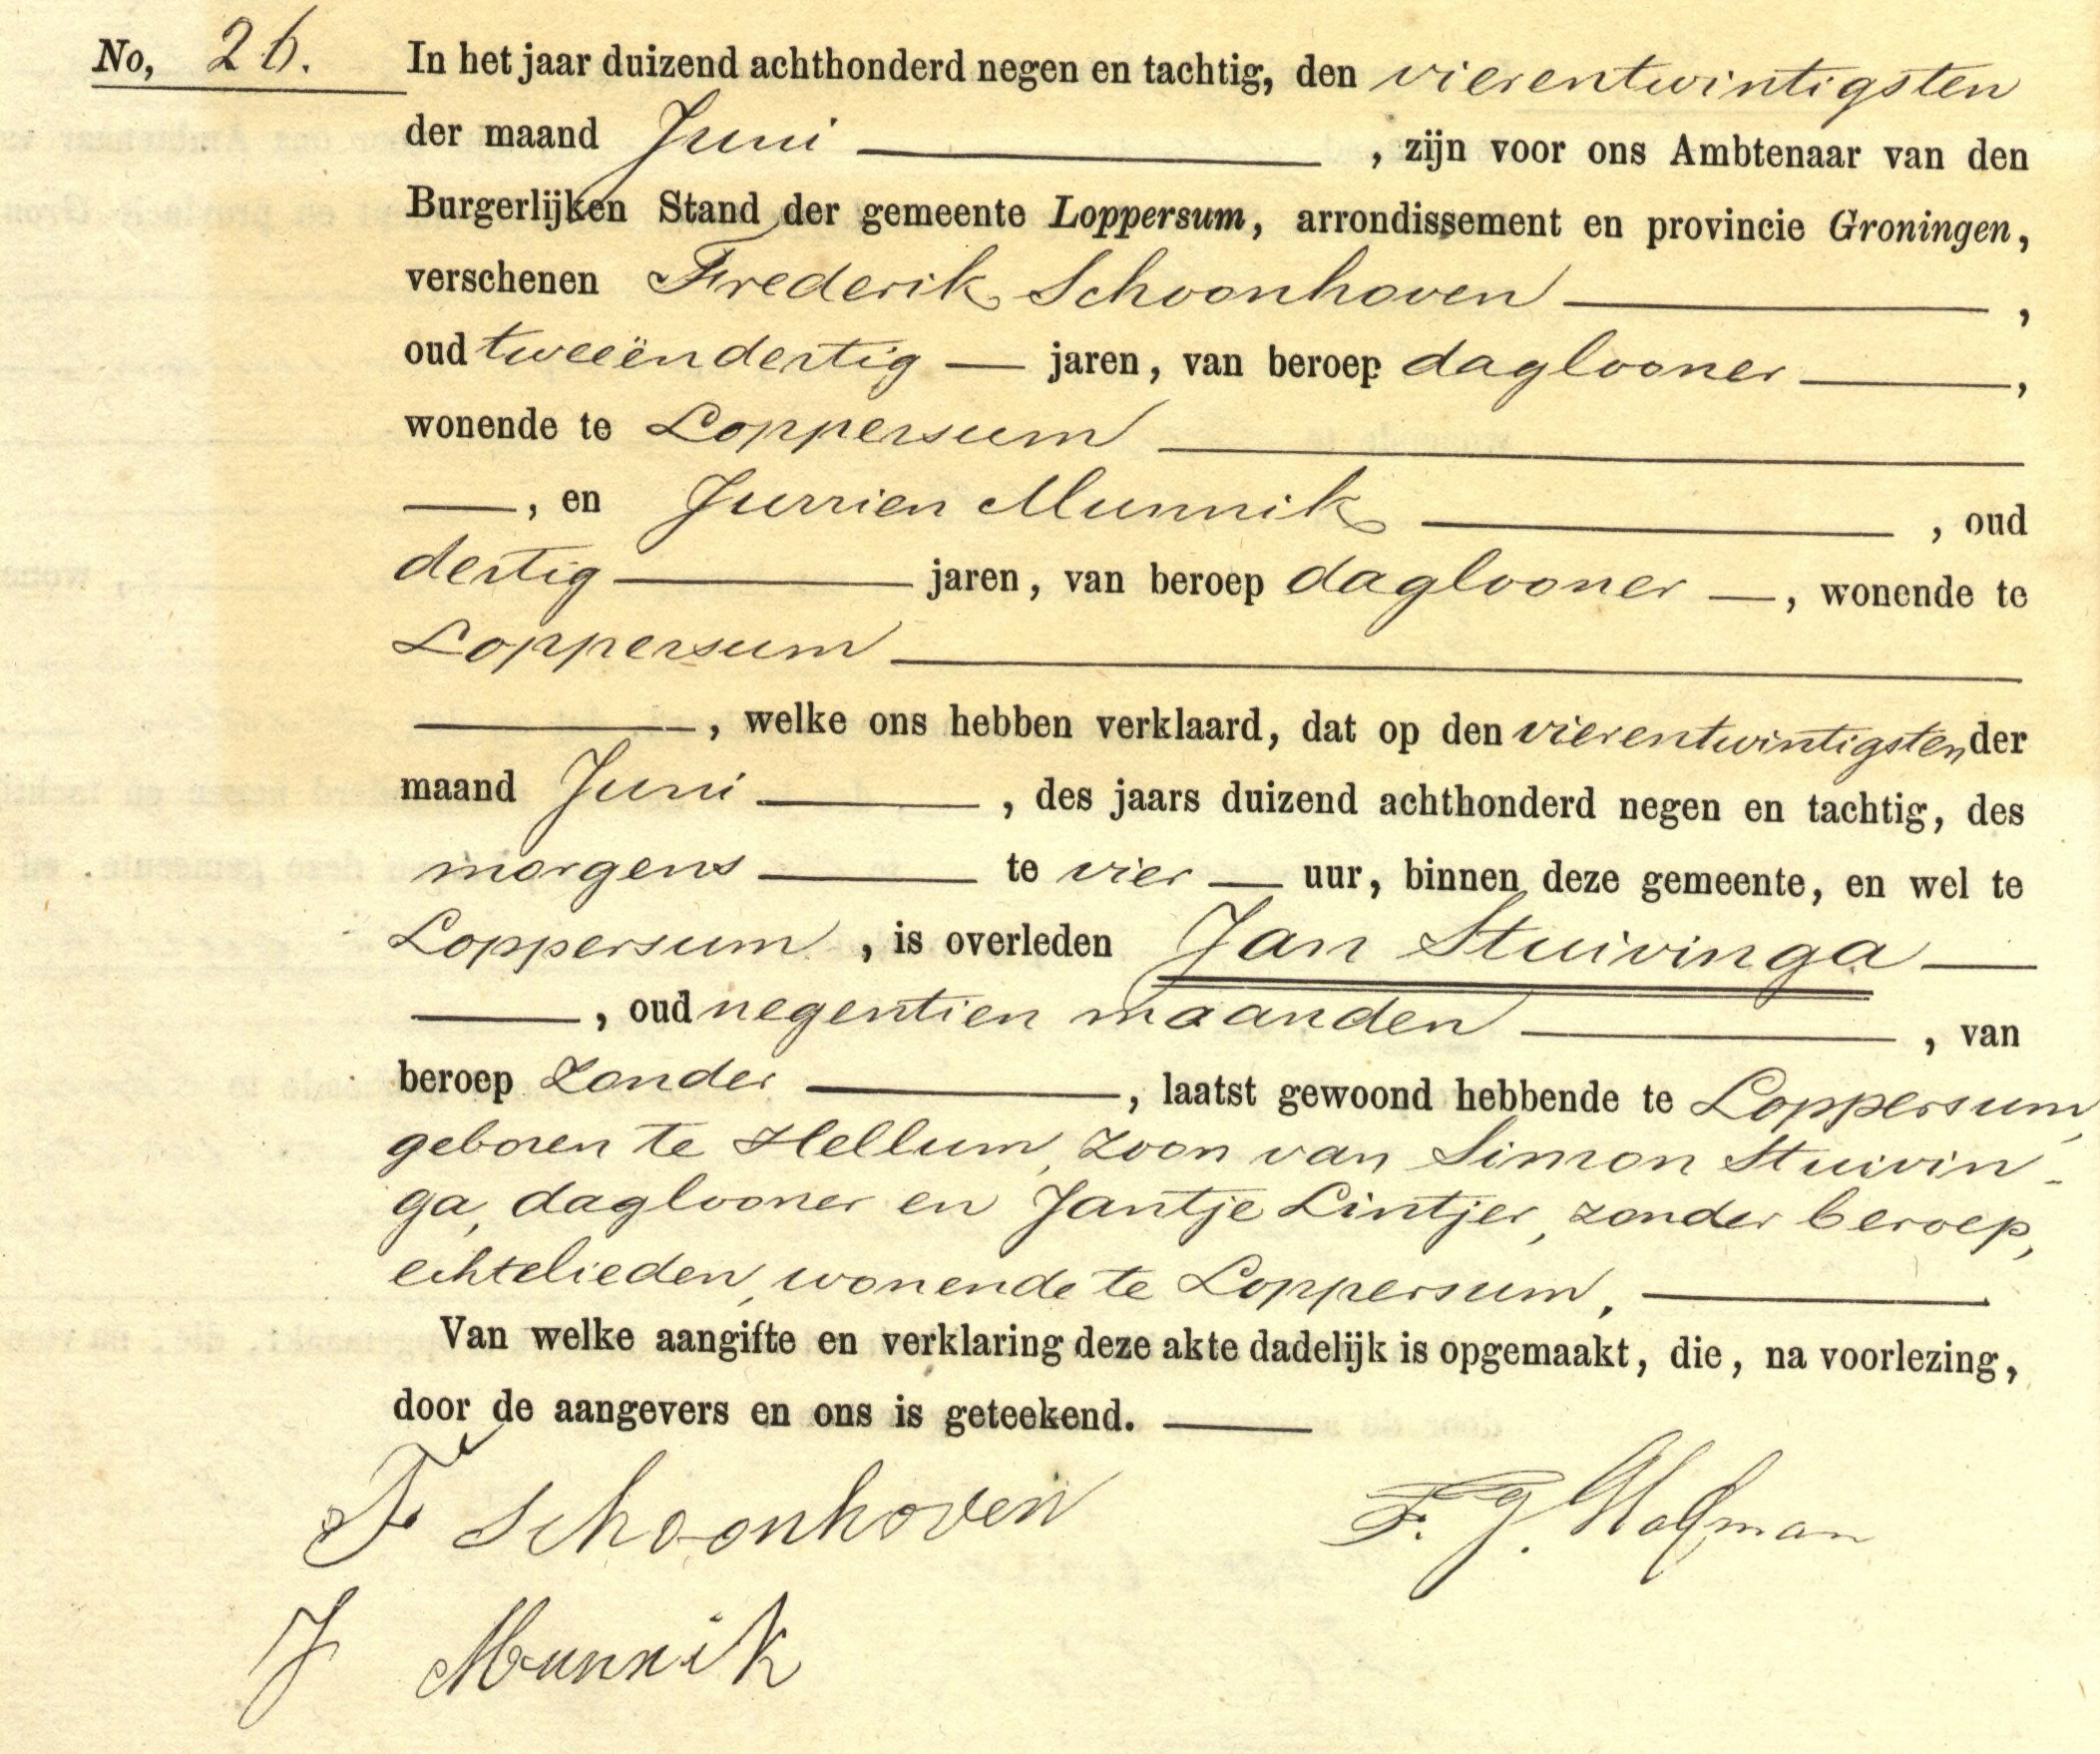 No, 26. In het jaar duizend achthonderd negen en tachtig, den vierentwintigsten
der maand Juni , zijn voor ons Ambtenaar van den
Burgerlijken Stand der gemeente Loppersum, arrondissement en provincie Groningen,
verschenen Frederik Schoonhoven ,
oud tweeëndertig jaren, van beroep daglooner ,
wonende te Loppersum
, en Jurrien Munnik , oud
dertig jaren, van beroep daglooner , wonende te
Loppersum
, welke ons hebben verklaard, dat op den vierentwintigsten der
maand Juni , des jaars duizend achthonderd negen en tachtig, des
morgens te vier uur, binnen deze gemeente, en wel te
Loppersum , is overleden Jan Stuivinga
, oud negentien maanden , van
beroep zonder , laatst gewoond hebbende te Loppersum,
geboren te Hellum, zoon van Simon Stuivin-
ga, daglooner en Jantje Lintjer, zonder beroep,
echtelieden, wonende te Loppersum.
Van welke aangifte en verklaring deze akte dadelijk is opgemaakt, die, na voorlezing,
door de aangevers en ons is geteekend.
F Schoonhoven F. J. Hofman
J Munnik